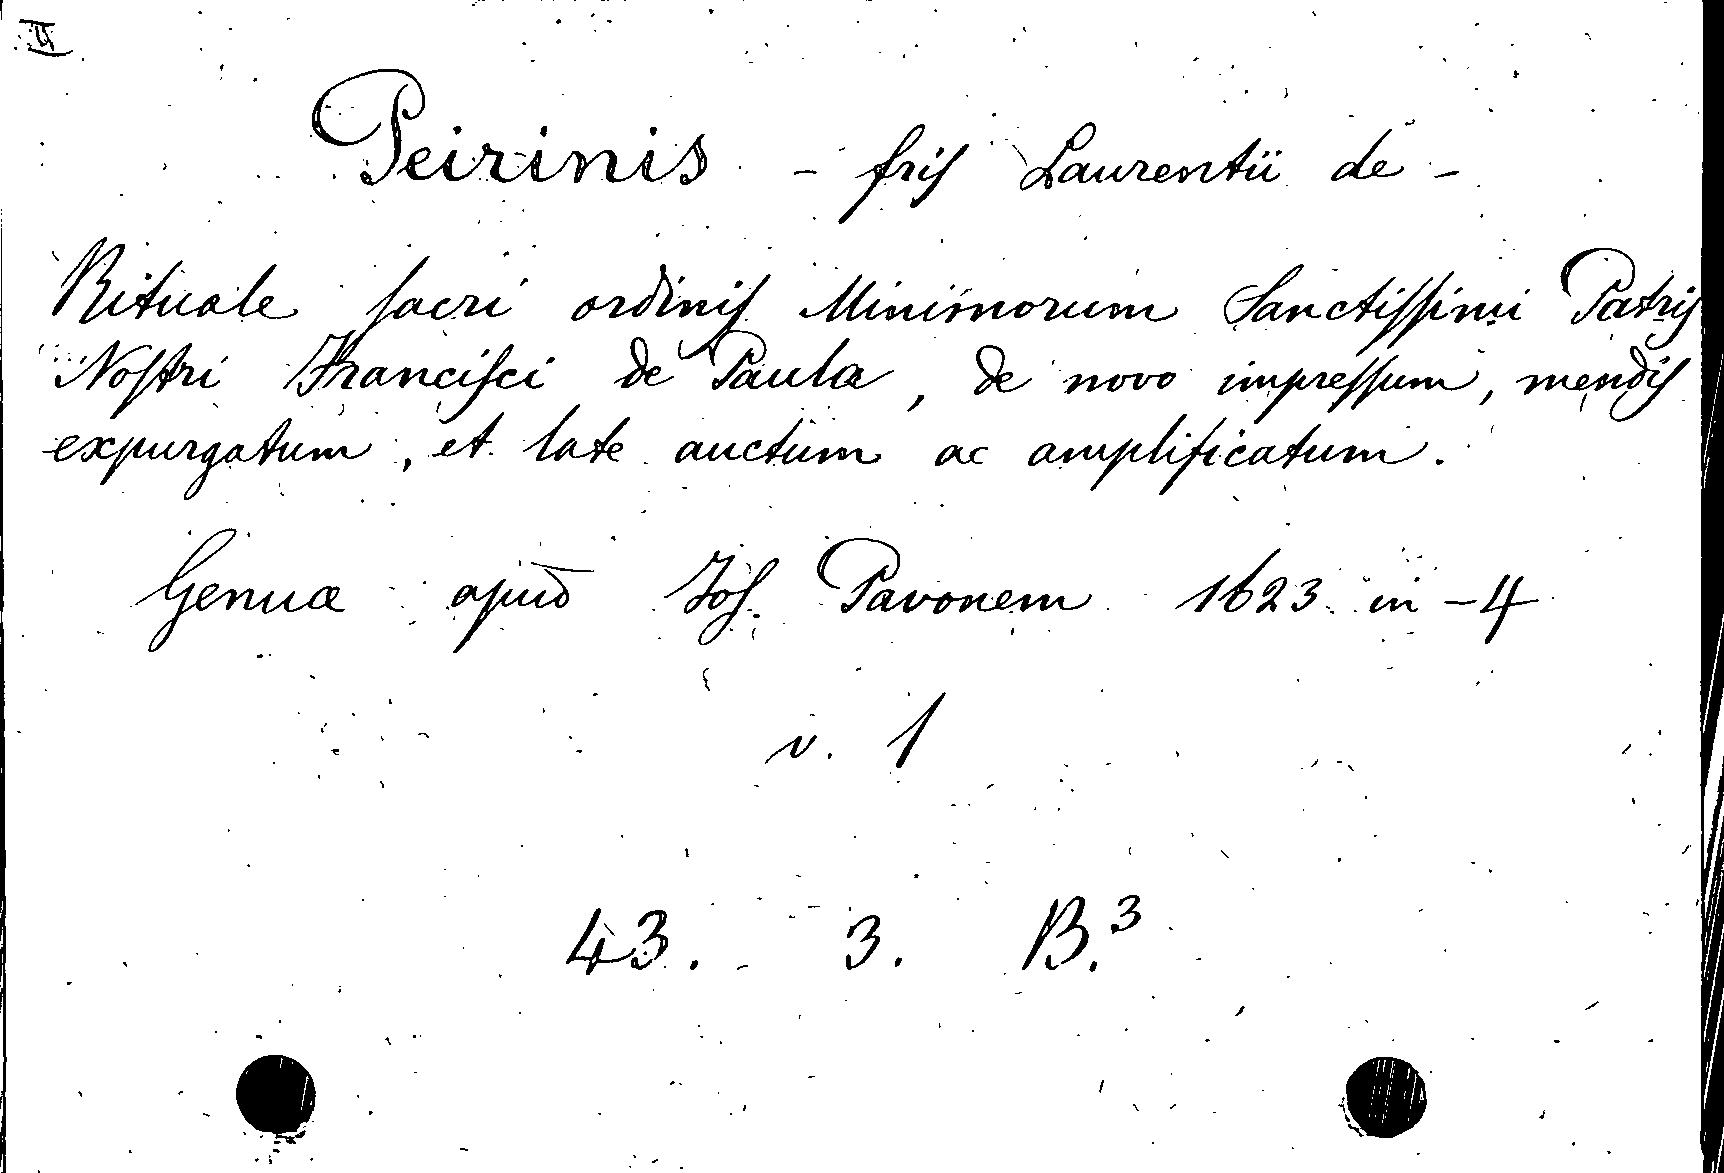 II
Peirinis - fris Laurentii de -
Rituale sacri ordinis Minimorum Sanctissimi Patris
Nostri Francisci de Paula, de novo impressum, mendis
expurgatum, et late auctum ac amplificatum.
Genuae apud Jos. Pavonem 1623 in-4
v. 1
43. 3. B.³